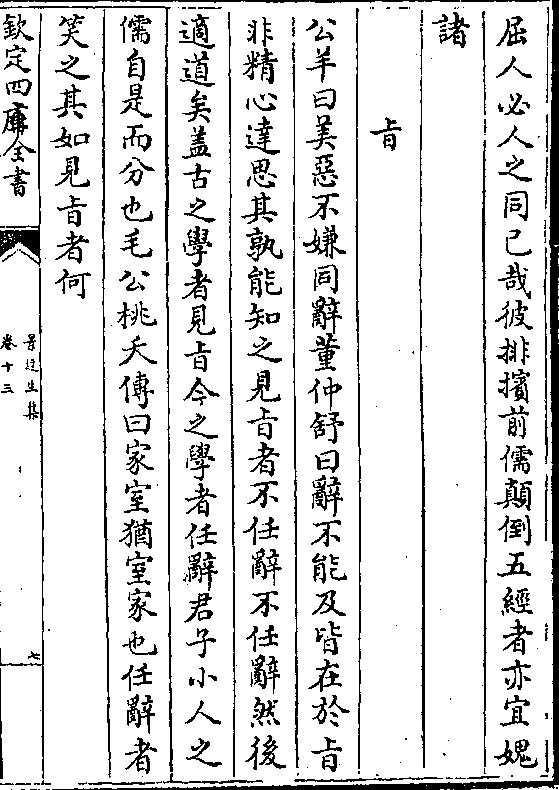 屈人必人之同己哉彼排擯前儒顛倒五經者亦宜媿
諸
旨
公羊曰美惡不嫌同辭董仲舒曰辭不能及皆在於旨
非精心達思其孰能知之見旨者不任辭不任辭然後
適道矣蓋古之學者見旨今之學者任辭君子小人之
儒自是而分也毛公桃夭傳曰家室猶室家也任辭者
笑之其如見旨者何
欽定四庫全書
景迂生集
卷十三
七